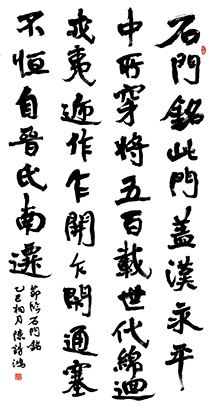 石門銘此門蓋漢永平
中所穿將五百載世代綿迴
戎夷遞作乍開乍閉通塞
不恒自晉氏南遷
節臨石門銘
乙巳相月陳